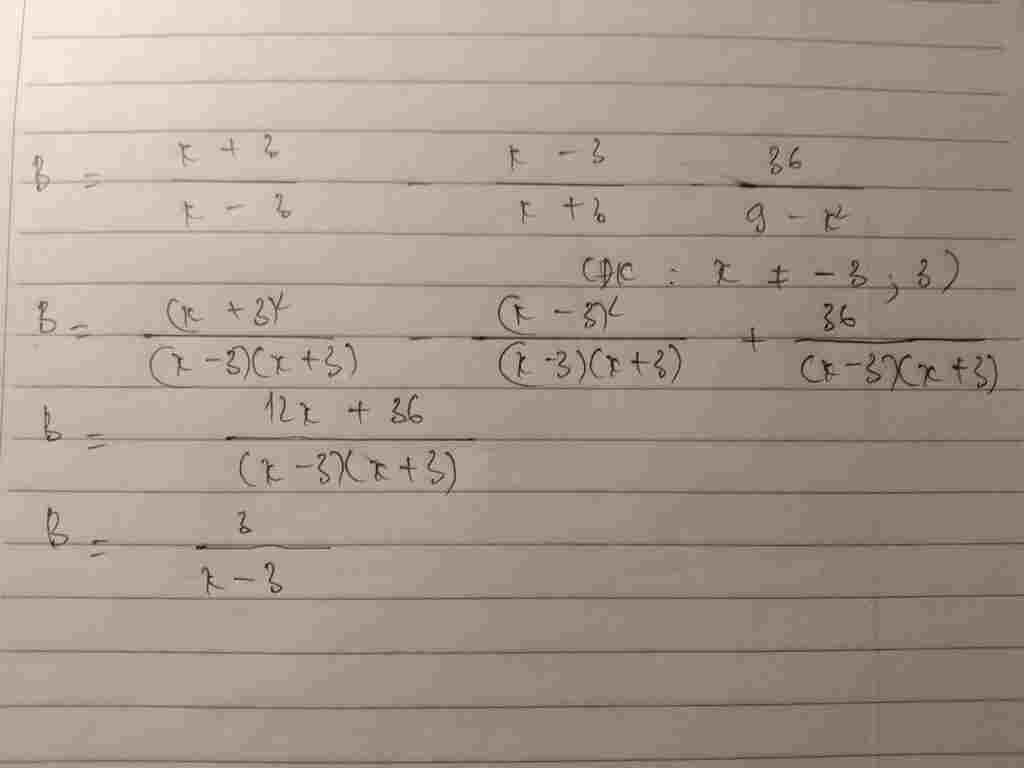 B = \frac{x + 3}{x - 3} - \frac{x - 3}{x + 3} - \frac{36}{9 - x^2}
(ĐK : x ≠ -3 ; 3)
B = \frac{(x + 3)^2}{(x - 3)(x + 3)} - \frac{(x - 3)^2}{(x - 3)(x + 3)} + \frac{36}{(x - 3)(x + 3)}
B = \frac{12x + 36}{(x - 3)(x + 3)}
B = \frac{3}{x - 3}